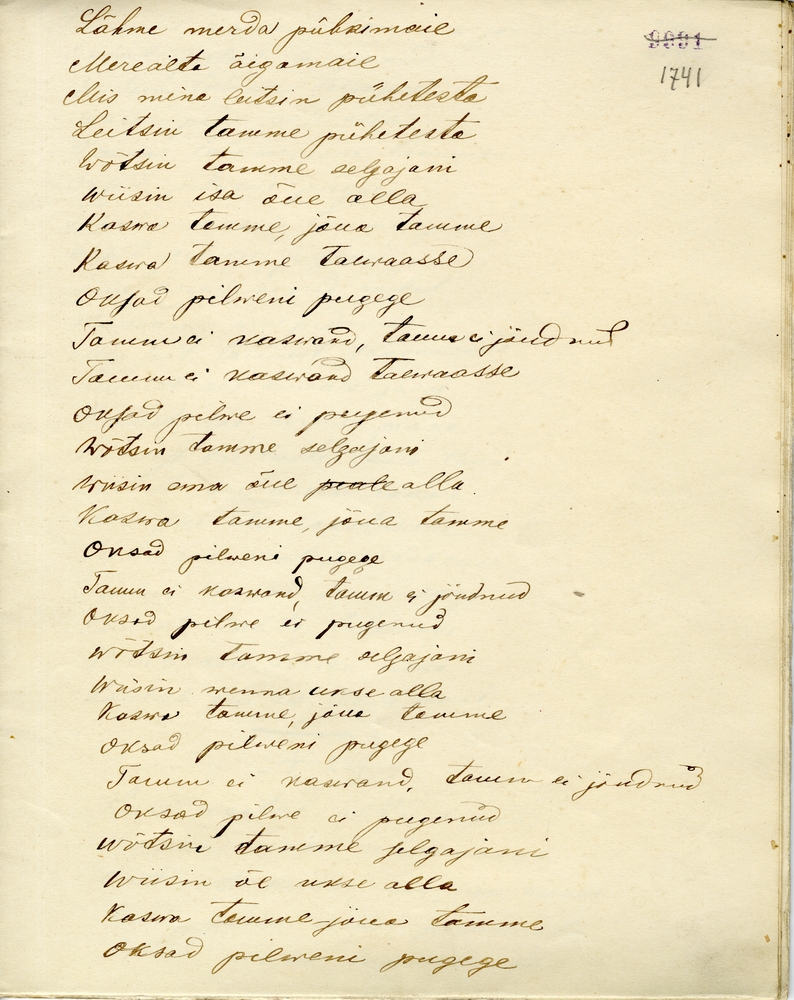 Lähme merda pühkimaie
9091
Mereälta õigamaie
1741
Mis mina leitsin pühetesta
Leitsin tamme pühetesta
Wõtsin tamme selgajani
Wiisin isa õue alla
Kaswa tamme, jõua tamme
Kaswa tamme taewaasse
Oksad pilweni pugege
Tamm ei kaswand, tamm ei jõudnud
Tamm ei kaswand taewaasse
Oksad pilwe ei pugenud
Wõtsin tamme selgajani
Wiisin ema õue peale alla
Kaswa tamme, jõua tamme
Oksad pilweni pugege
Tamm ei kaswand, tamm ei jõudnud
Oksad pilwe ei pugenud
Wõtsin tamme selgajani
Wiisin wenna ukse alla
Kaswa tamme, jõua tamme
Oksad pilweni pugege
Tamm ei kaswand, tamm ei jõudnud
Oksad pilwe ei pugenud
Wõtsin tamme selgajani
Wiisin õe ukse alla
Kaswa tamme jõua tamme
Oksad pilweni pugege